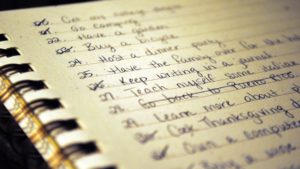 Get my college degree
Go camping
22. Have a garden
Buy a bicycle
24. Host a dinner party
25. Have the family over for the
Keep writing in a journal
27. Teach myself some
Go back to Puerto Rico
29. Learn more about
Cook Thanksgiving
Own a computer
Buy a